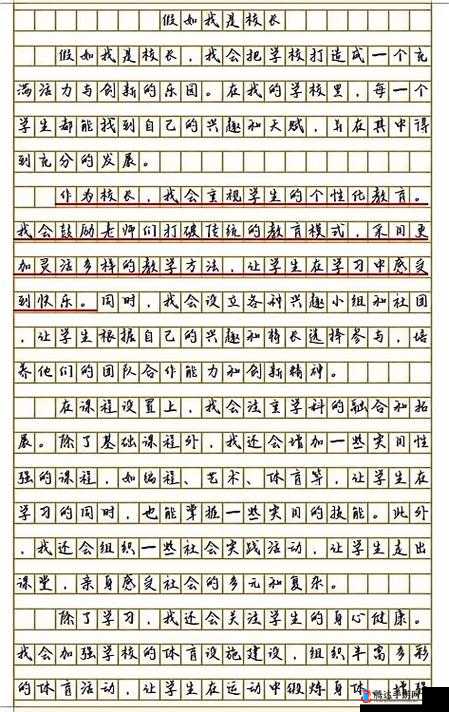 假如我是校长
假如我是校长，我会把学校打造成一个充
满活力与创新的乐园。在我的学校里，每一个
学生都能找到自己的兴趣和天赋，并在其中得
到充分的发展。
作为校长，我会重视学生的个性化教育。
我会鼓励老师们打破传统的教育模式，采用更
加灵活多样的教学方法，让学生在学习中感受
到快乐。同时，我会设立各种兴趣小组和社团
，让学生根据自己的兴趣和特长选择参与，培
养他们的团队合作能力和创新精神。
在课程设置上，我会注重学科的融合和拓
展。除了基础课程外，我还会增加一些实用性
强的课程，如编程、艺术、体育等，让学生在
学习的同时，也能掌握一些实用的技能。此外
，我还会组织一些社会实践活动，让学生走出
课堂，亲身感受社会的多元和复杂。
除了学习，我还会关注学生的身心健康。
我会加强学校的体育设施建设，组织丰富多彩
的体育活动，让学生在运动中锻炼身体，增强
腾达手游网